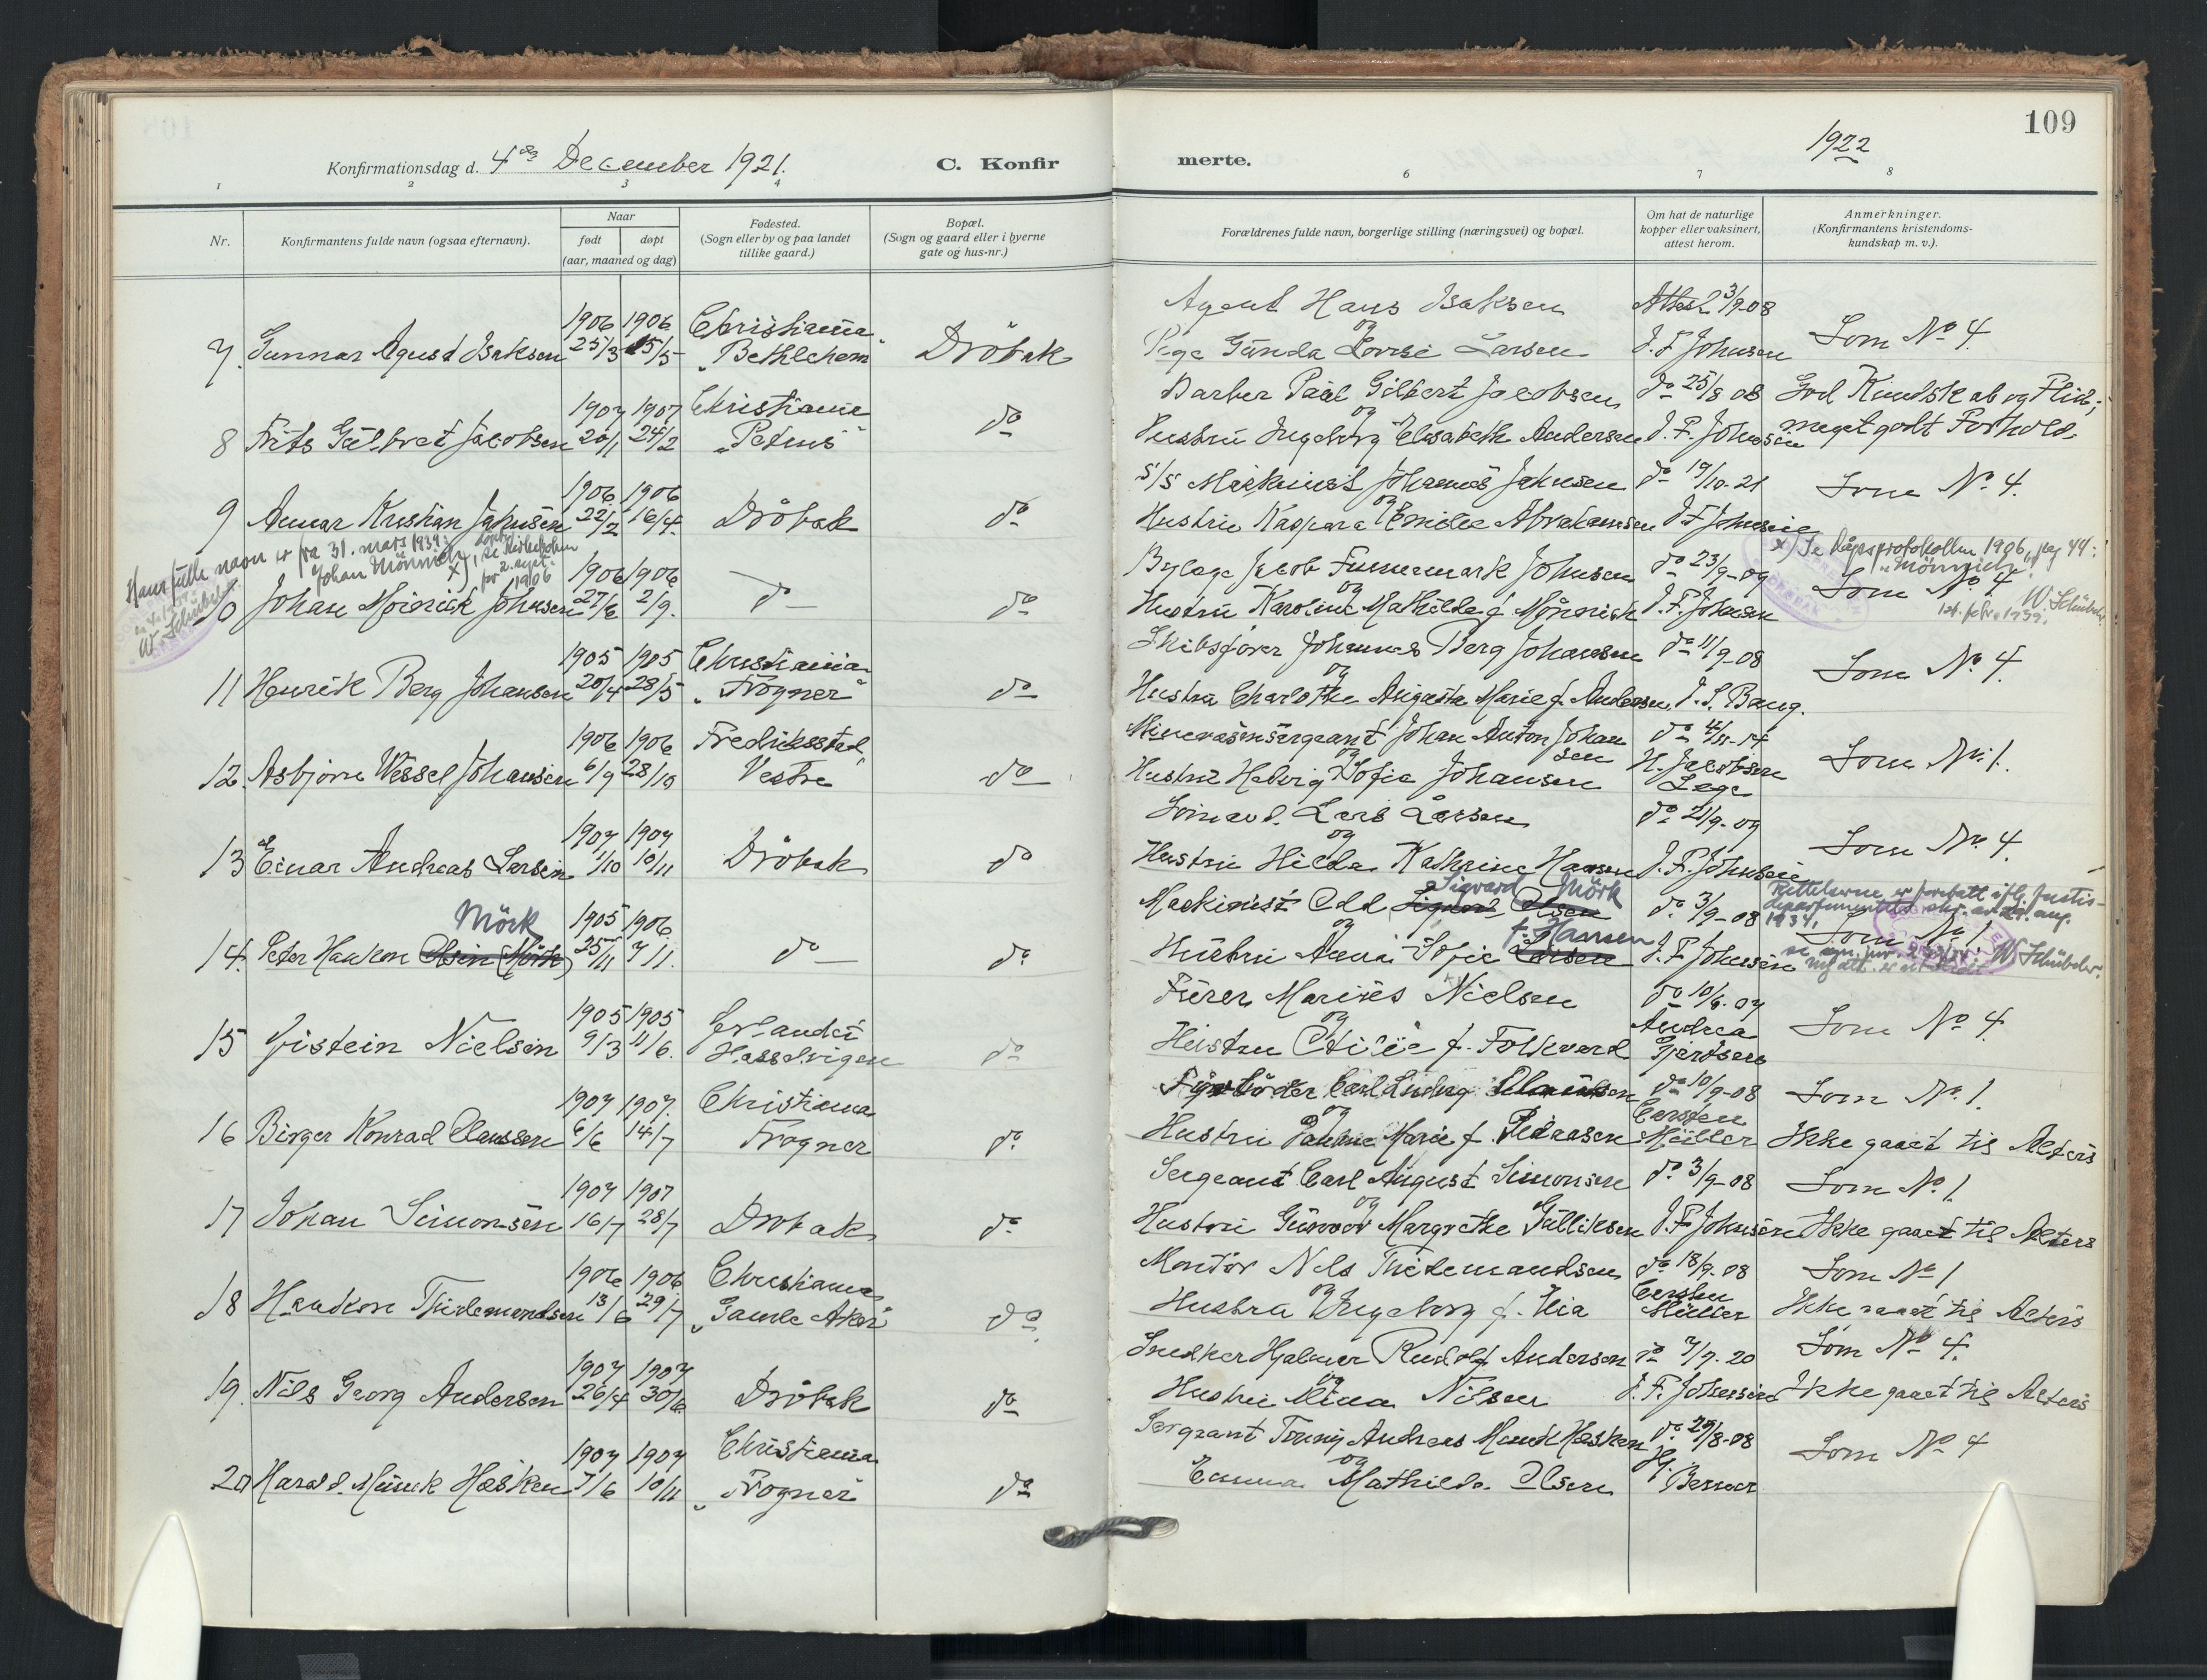 109
Konfirmationsdag d. 4de December 1921.
C. Konfir
merte.
1922
1 2 3 4 6 7 8
Nr.
Konfirmantens fulde navn (ogsaa efternavn).
Naar
født døpt
(aar, maaned og dag)
Fødested.
(Sogn eller by og paa landet
tillike gaard.)
Bopæl.
(Sogn og gaard eller i byerne
gate og hus-nr.)
Forældrenes fulde navn, borgerlige stilling (næringsvei) og bopæl.
Om hat de naturlige
kopper eller vaksinert,
attest herom.
Anmerkninger.
(Konfirmantens kristendoms-
kundskap m. v.).
1906 1906 Christiania Agent Hans Isaksen Attest 3/9-08
7. Gunnar Agust Isaksen 25/3 25/5 „Bethlehem" Dröbak og Pige Gunda Lovise Larsen J. F Johnsen Som No 4.
1907 1907 Christiania Barber Paul Gilbert Jacobsen do 25/8 08 God Kundskab og Flid;
8 Frits Gilbret Jacobsen 20/1 24/2 „Petrus" do og Hustru Ingeborg Elisabeth Andersen J. F. Johnsen meget godt Forhold.
1906 1906 S/S Maskinist Johannes Johnsen do 19/10. 21
9 Annar Kristian Johnsen 22/2 16/4. Dröbak do og Hustru Kaspara Emilie Abrahamsen J F Johnsen Som No. 4.
Hans fulle navn er fra 31. mars 1939:
Johan Mönnich x)
for 2. sept. 1906
W. Schübeler
x) Se dåpsprotokollen 1906, pag 44:
„Mönnich".
14. febr. 1939. W. Schübeler.
1906 1906 Jacob Finnemark Johnsen do 23/9-09
10 Johan Moinick Johnsen 27/6 2/9. do do og Hustru Karoline Mathilde f. Mönnich J. F. Johnsen Som No. 4
1905 1905 Christiania Skibsförer Johannes Berg Johansen do 11/9-08
11 Henrik Berg Johansen 20/4 28/5 „Frogner" do og Hustru Charlotte Augusta Marie f. Andersen. J. S. Bang. Som No. 4.
1906 1906 Fredriksstad Minevæsensergeant Johan Anton Johansen do
12. Asbjörn Wessel Johansen 6/9 28/10 Vestre do og Hustru Hedvig Sofie Johansen H. Jacobsen Læge Som No. 1.
1907 1907 Sömand. Lars Larsen do 21/9-09
13 Einar Andreas Larsen 1/10 10/11 Dröbak do og Hustru Hilda Kathrine Hansen J. F. Johnsen Som No. 4.
Mörk 1905 1906 Maskinist Odd Sigvard Mörk do 3/9-08
14. Peter Haakon Olsen (Mörk) 25/11 7/1. do do og Hustru Anna Sofie f. Hansen Larsen J. F. Johnsen Som No 1.
Rettelserne er foretatt iflg. Justis-
departementets skr. av 29. aug.
1934.
W Schübeler.
1905 1905 Fürer Marius Nielsen do 10/6. 07
15 Öistein Nielsen 9/3 11/6. Hasselvigen do og Hustru Otilie f. Folkvard Andrea Gjertsen Som No. 4.
1907 1907. Christiania Fyrböder Carl Ludvig Clausen do 10/9-08 Som No. 1.
16 Birger Konrad Claussen 6/6 14/7 Frogner do og Hustru Pauline Marie f. Pedersen Carsten Müller Ikke gaaet til Alters
1907 1907 Sergeant Carl August Simonsen do 3/9-08 Som No. 1.
17 Johan Simonsen 16/7 28/7 Dröbak do og Hustru Gunvor Margrethe Gulliksen J. F. Johnsen Ikke gaaet til Alters
1906 1906 Christiania Montör Nels Thidemandsen do 18/9-08 Som No 1
18 Haakon Thidemandsen 13/6 29/7 „Gamle Aker" do og Hustru Ingeborg f. Lia Carsten Müller Ikke gaaet til Alters
1907 1907 Snedker Hjalmar Rudolf Andersen do 7/7. 20 Som No 4.
19. Nils Georg Andersen 26/4 30/6. Dröbak do og Hustru Mina Nilsen J. F. Johnsen Ikke gaaet til Alters
1907 1907 Christiania Sergeant Andreas Munck Hesken do 29/8-08
20 Harald. Munck Hesken 7/6 10/11 „Frogner" do og Emma Mathilde Olsen Som No 4